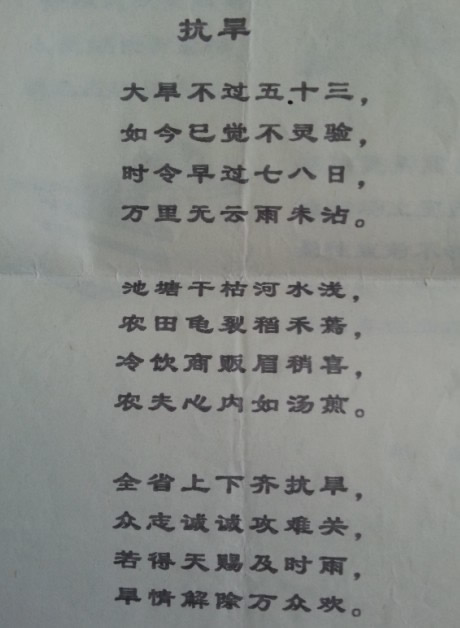 抗旱
大旱不过五十三，
如今已觉不灵验，
时令早过七八日，
万里无云雨未沾。
池塘干枯河水浅，
农田龟裂稻禾蔫，
冷饮商贩眉稍喜，
农夫心内如汤煎。
全省上下齐抗旱，
众志诚诚攻难关，
若得天赐及时雨，
旱情解除万众欢。